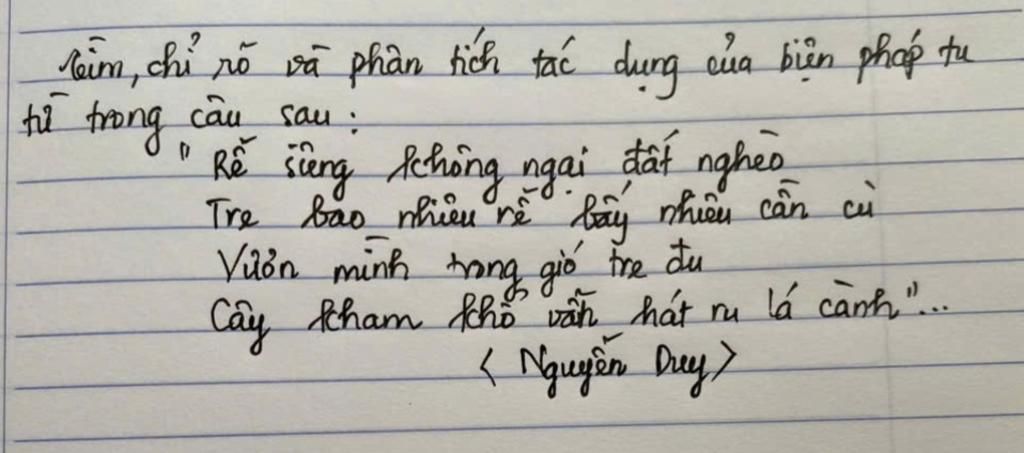 Tìm, chỉ rõ và phân tích tác dụng của biện pháp tu
từ trong câu sau:
"Rễ siêng không ngại đất nghèo
Tre bao nhiêu rễ bấy nhiêu cần cù
Vươn mình trong gió tre đu
Cây kham khổ vẫn hát ru lá cành"...
< Nguyễn Duy >